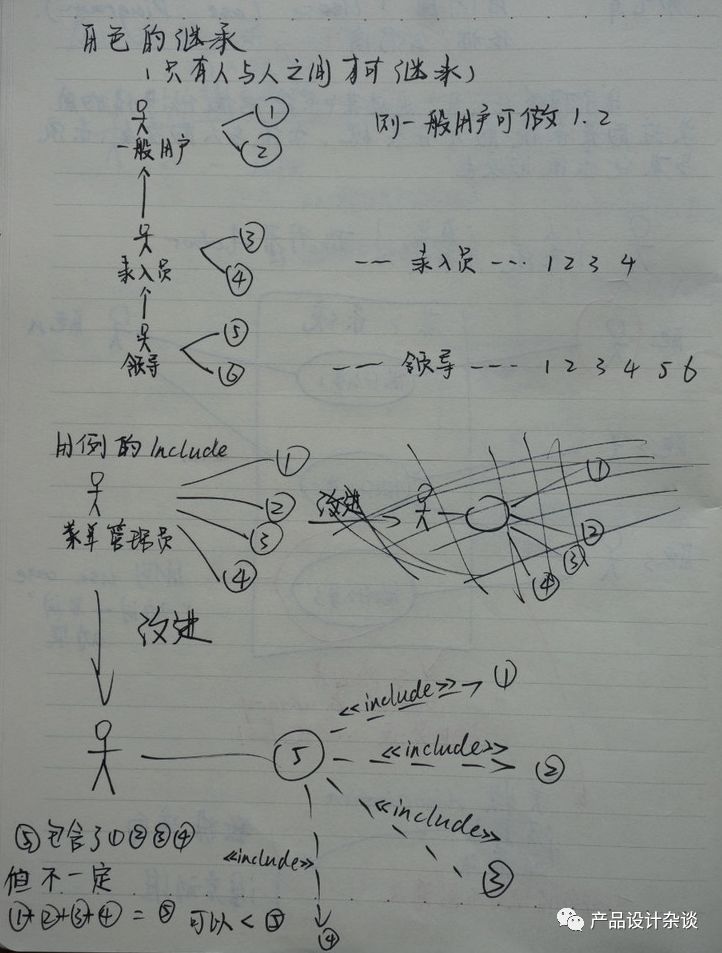 角色的继承
(只有人与人之间才可继承)
① 
一般用户 ② 则一般用户可做 1. 2
③
录入员 ④ --- 录入员 --- 1 2 3 4
⑤
领导 ⑥ --- 领导 --- 1 2 3 4 5 6
用例的 Include
①
② 改进 ①
菜单管理员 ③ ②
④ ③
④
改进
<<include>> ①
⑤ <<include>> ②
<<include>>
③
<<include>>
④
⑤ 包含了①②③④
但不一定
①+②+③+④ = ⑤ 可以 < ⑤
产品设计杂谈